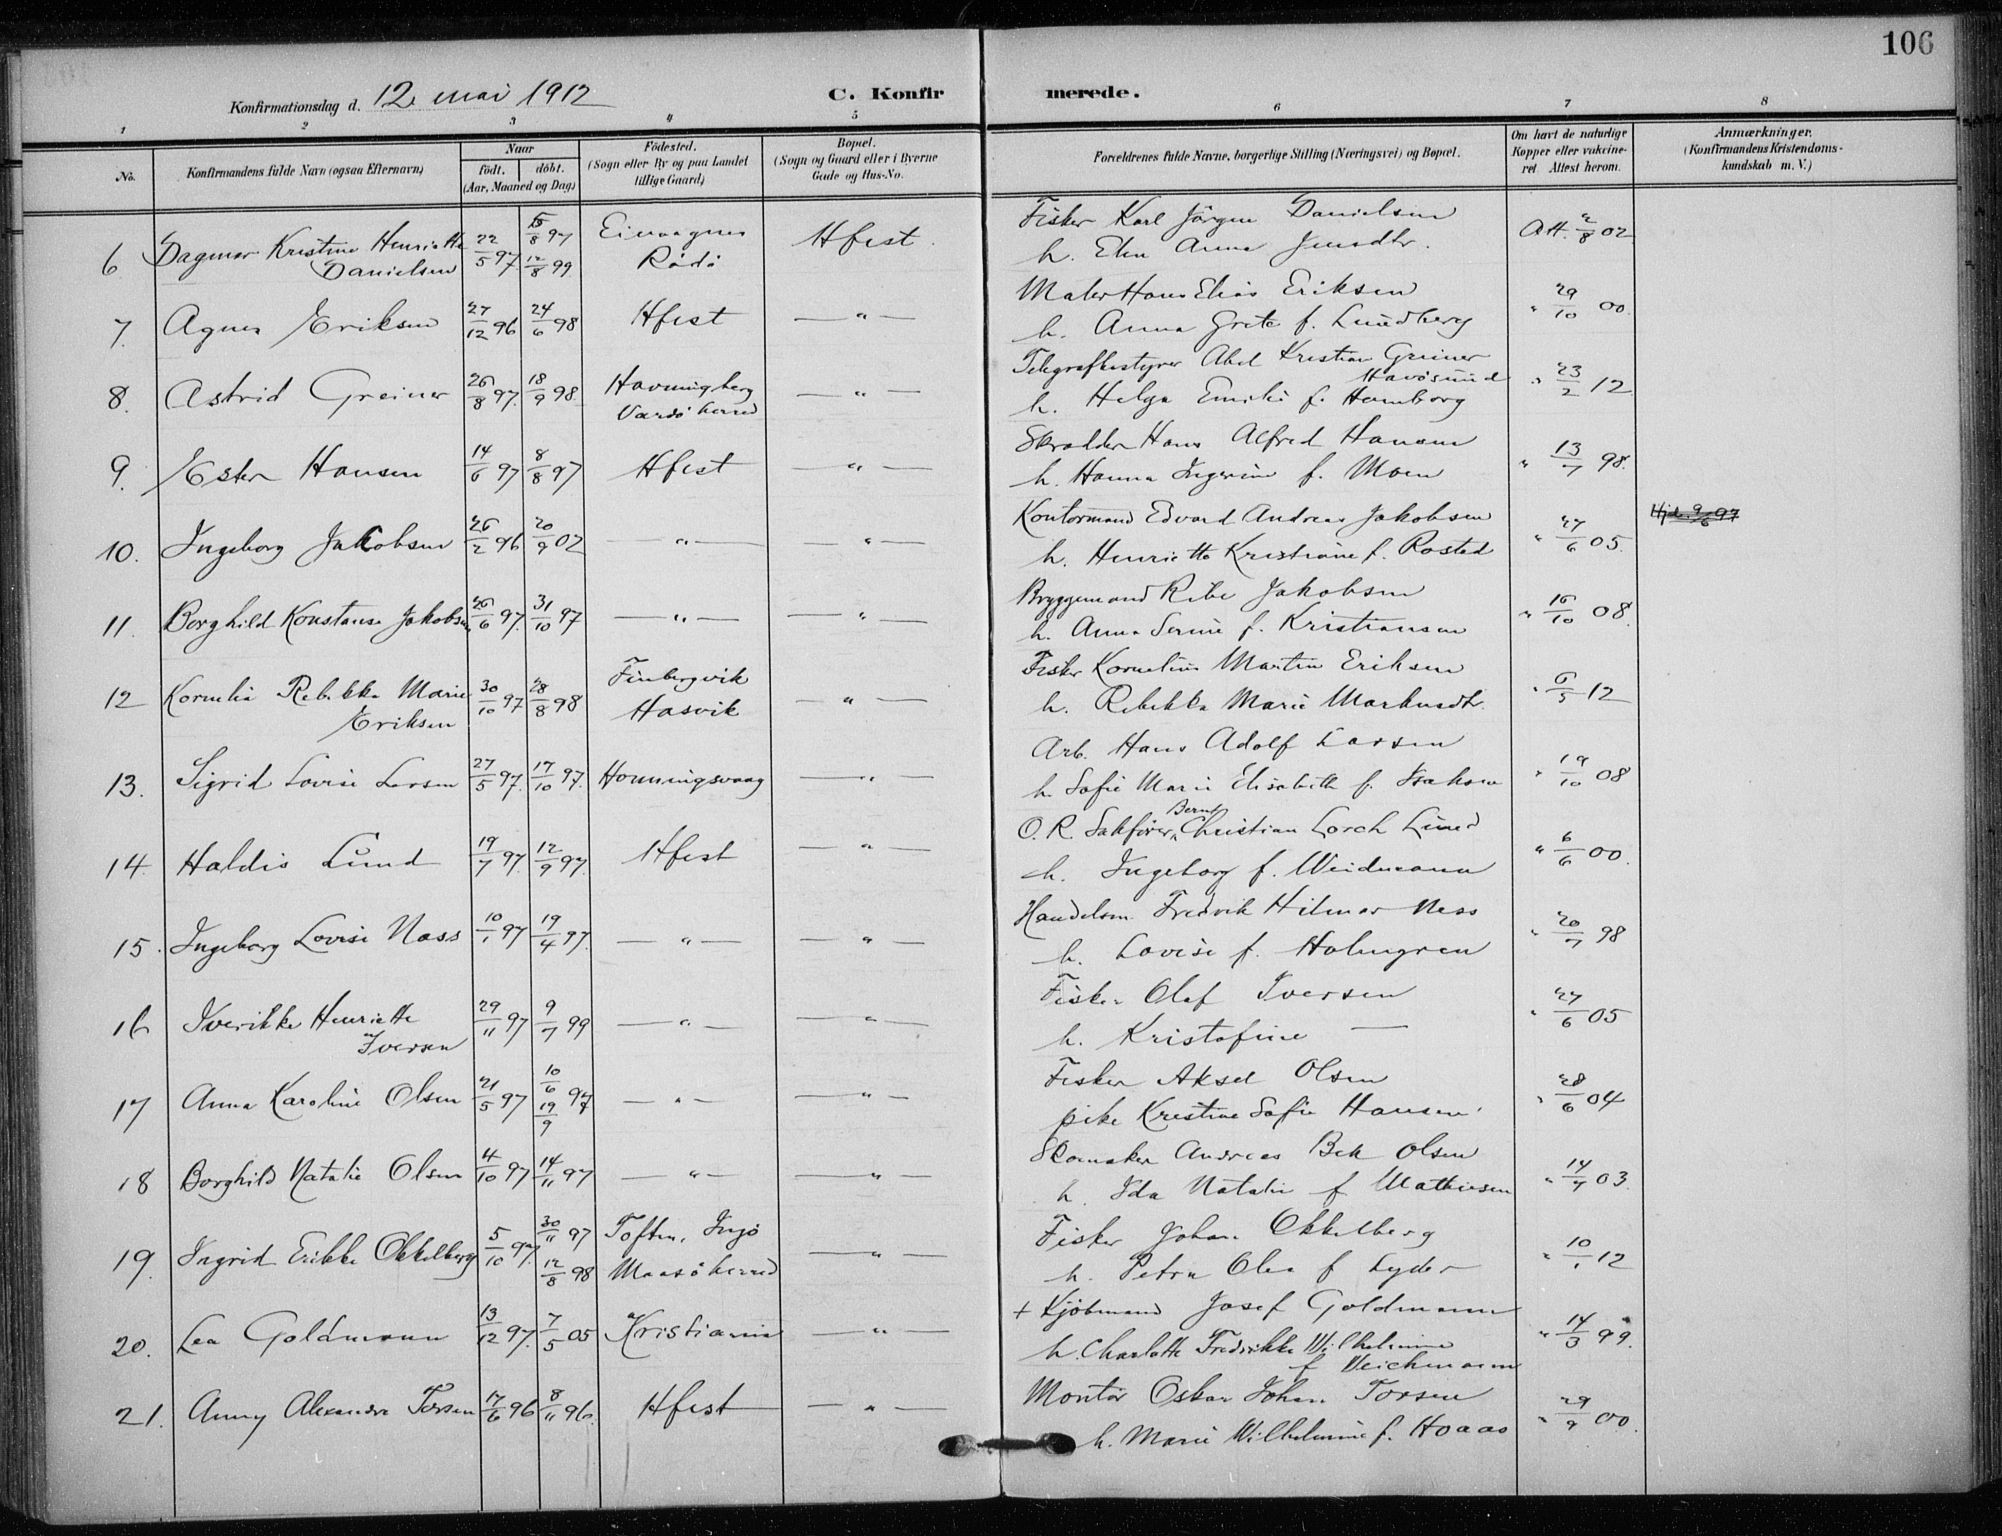 106
Konfirmationsdag d. 12 mai 1912 C. Konfirmerede.
1 2 3 4 5 6 7 8
No. Konfirmandens fulde Navn (ogsaa Efternavn) Naar födt. döbt. (Aar, Maaned og Dag) Födested. (Sogn eller By og paa Landet tillige Gaard) Bopæl. (Sogn og Gaard eller i Byerne Gade og Hus-No. Forældrenes fulde Navne, borgerlige Stilling (Næringsvei) og Bopæl. Om havt de naturlige Kopper eller vakcineret. Attest herom. Anmærkninger. (Konfirmandens Kristendomskundskab m. V.)
6 Dagmar Kristine Henriette 22/5 97 8 97 Hfest. Fisker Karl Jörgen Danielsen Att. 2/8 02
Danielsen 12/8 99 Rödö h. Elen Anna
7. Agnes Eriksen 27/12 96 24/6 98 Hfest — " — Maler Hans Elias Eriksen " 29/10 00.
h. Anna Grete f. Lundberg
8. Astrid Greiner 26/8 97. 18/9 98 Havningberg — " — Telegrafbestyrer Abel Kristian Greiner " 23/2 12
Vardö herred Havösund
h. Helga Emilie f. Hamborg
9. Ester Hansen 14/6 97 8/8 97 Hfest — " — Hans Alfred Hansen " 13/7 98.
h. Hanna Ingerine f. Moen
10. Ingeborg Jakobsen 26/2 96 20/9 02 — " — — " — Kontormand Edvard Andreas Jakobsen " 27/6 05. Hjd. 9/6 97
h. Henriette Kristiane f. Rosted
11. Borghild Konstanse Jakobsen 26/6 97. 31/10 97 — " — — " — Bryggemand Ribe Jakobsen " 16/10 08.
h. Anna Serine f. Kristiansen
12 Kornelia Rebekka Marie 30/10 97 28/8 98 Finbergvik — " — Fisker Kornelius Martin Eriksen " 6/5 12
Eriksen Hasvik h. Rebekka Marie Markusdtr.
13. Sigrid Lovise Larsen 27/5 97. 17/10 97. Honningsvaag — " — Arb. Hans Adolf Larsen " 19/10 08
h. Sofie Marie Elisabeth f. Isaksen
14. Haldis Lund 19/7 97. 12/9 97. Hfest — " — O. R. Sakförer Bernt Christian Lorch Lund " 6/6 00.
h. Ingeborg f. Weidemann
15. Ingeborg Lovise Næss 10/1 97 19/4 97. — " — — " — Handelsm. Fredrik Hilmar Ness " 20/7 98
h. Lovise f. Holmgren
16 Iverikke Henriette 29/11 97 9/7 99 — " — — " — Fisker Olaf Iversen " 27/6 05
Iversen h. Kristofine —
17 Anna Karoline Olsen 21/5 97 10/6 19/9 97 — " — — " — Fisker Aksel Olsen " 28/6 04
pike Kristine Sofie Hansen.
18 Borghild Natalie Olsen 4/10 97 14/11 97 — " — — " — Skomaker Andreas Bek Olsen " 14/7 03.
h. Ida Natalie f Mathiesen
19. Ingrid Erikke Okkelberg 5/10 97. 30/11 97 Toften, Ingö — " — Fisker Johan Okkelberg " 10/1 12
12/8 98 Maasö herred h. Petra Olea f Lyder
20. Lea Goldmann 13/12 97. 7/5 05 Kristiania — " — + Kjöbmand Josef Goldmann " 14/3 99.
h. Charlotte Fredrikke Wilhelmine
f Weichmann
21. Anny Alexandra Torsen 17/6 96 8/11 96. Hfest — " — Montör Oskar Johan Torsen " 29/9 00.
h. Marie Wilhelmine f. Hoaas